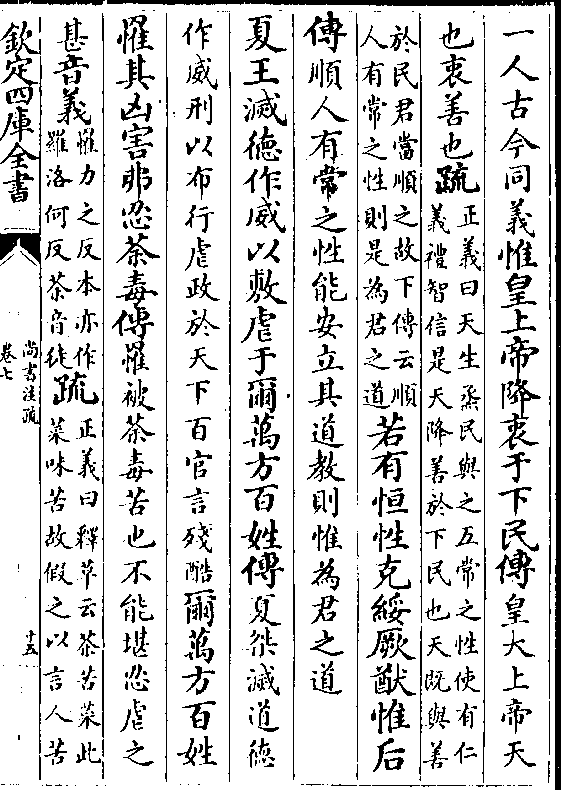 一人古今同義惟皇上帝降衷于下民傳皇大上帝天
也衷善也疏
正義曰天生烝民與之五常之性使有仁
義禮智信是天降善於下民也天既與善
於民君當順之故下傳云順
人有常之性則是為君之道
若有恒性克綏厥猷惟后
傳順人有常之性能安立其道教則惟為君之道
夏王滅德作威以敷虐于爾萬方百姓傳夏桀滅道德
作威刑以布行虐政於天下百官言殘酷爾萬方百姓
罹其凶害弗忍荼毒傳罹被荼毒苦也不能堪忍虐之
甚音義
罹力之反本亦作
羅洛何反荼音徒
疏
正義曰釋草云荼苦菜此
菜味苦故假之以言人苦
欽定四庫全書
尚書注疏
卷七
十五